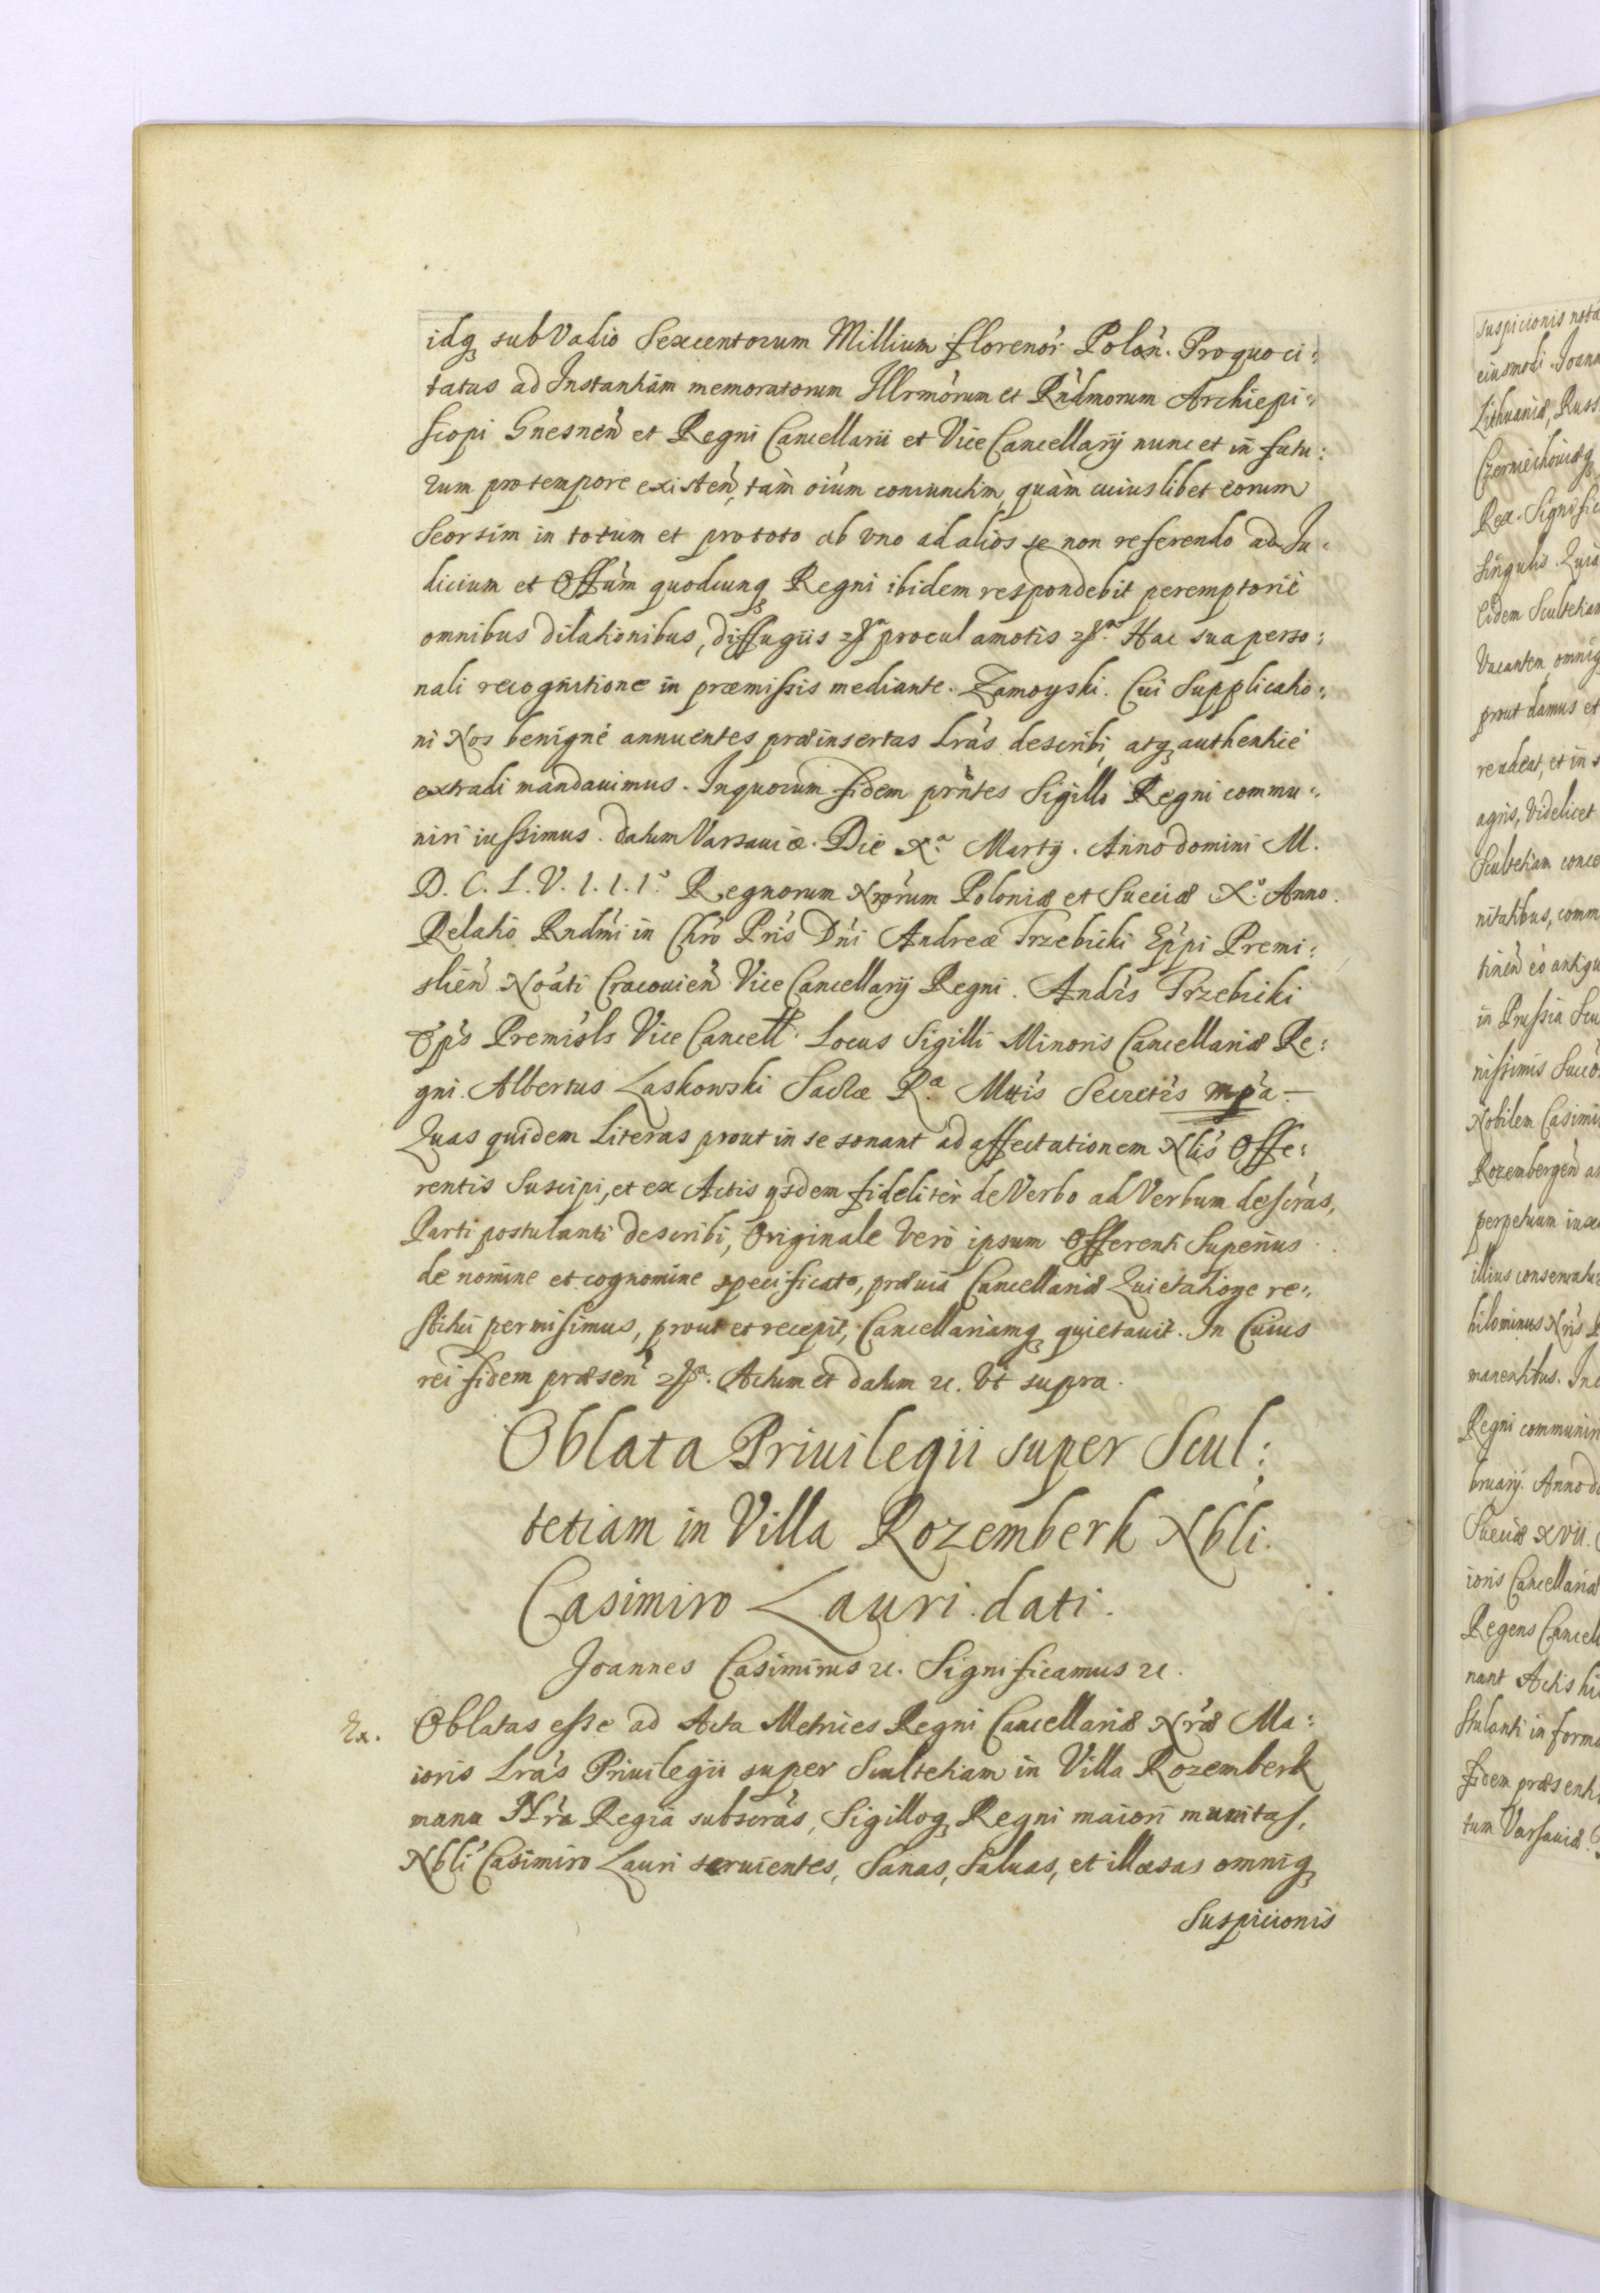 idq sub Vadio Sexcentorum Millium florenor Polon. Pro quo ci:
tatus ad Instantiam memoratorum Illrmorum et Rndmorum Archiepi:
scopi Gnesnen et Regni Cancellarii et Vice Cancellarij nunc et in futu:
rum pro tempore existen, tam oium coniunctim quàm cuiuslibet eorum
Seorsim in totum et pro toto ab vno ad alios se non referendo ad Iu:
dicium et Offum quodcunq Regni ibidem respondebit peremptoriè
omnibus dilationibus, diffugiis procul amotis Hac sua perso:
nali recognitione in præmissis mediante. Zamoyski. Cui Supplicatio:
ni Nos benignè annuentes præinsertas Lras describi, atq authenticè
extradi mandauimus. In quorum fidem prntes Sigillo Regni commu:
niri iussimus. datum Varsauiæ. Die X.a Martij. Anno domini M.
D. C. L. V. I. I. I.o Regnorum Nrorum Poloniæ et Sueciæ X.o Anno.
Relatio Rndmi in Chro Pris Dni Andreæ Trzebicki Eppi Premi:
slien Noati Cracouien Vice Cancellarij Regni. Andrs Trzebicki
Eps Premisls Vice Cancell. Locus Sigilli Minoris Cancellariæ Re:
gni. Albertus Laskowski Sacræ R.a Mttis Secretrs mpa.
Quas quidem Literas prout in se sonant ad affectationem Nlis Offe:
rentis Suscipi, et ex Actis ysdem fideliter de Verbo ad Verbum descras,
Parti postulanti describi, Originale verò ipsum Offerenti Superius
de nomine et cognomine specificato, præuia Cancellariæ Quietatione re:
stitui permisimus, prout et recepit, Cancellariamq quietauit. In Cuius
rei fidem præsen Actum et datum &c. Vt supra.
Oblata Priuilegii super Scul:
tetiam in Villa Rozemberk Nbli
Casimiro Lauri dati.
Joannes Casimirus &c. Significamus &c.
Ex. Oblatas esse ad Acta Metrices Regni Cancellariæ Nræ Ma:
ioris Lras Priuilegii super Scultetiam in Villa Rozemberk
manu Nra Regia subscras, Sigilloq Regni maiori munitas,
Nbli Casimiro Lauri seruientes, Sanas, Saluas, et illæsas omniq
Suspicionis